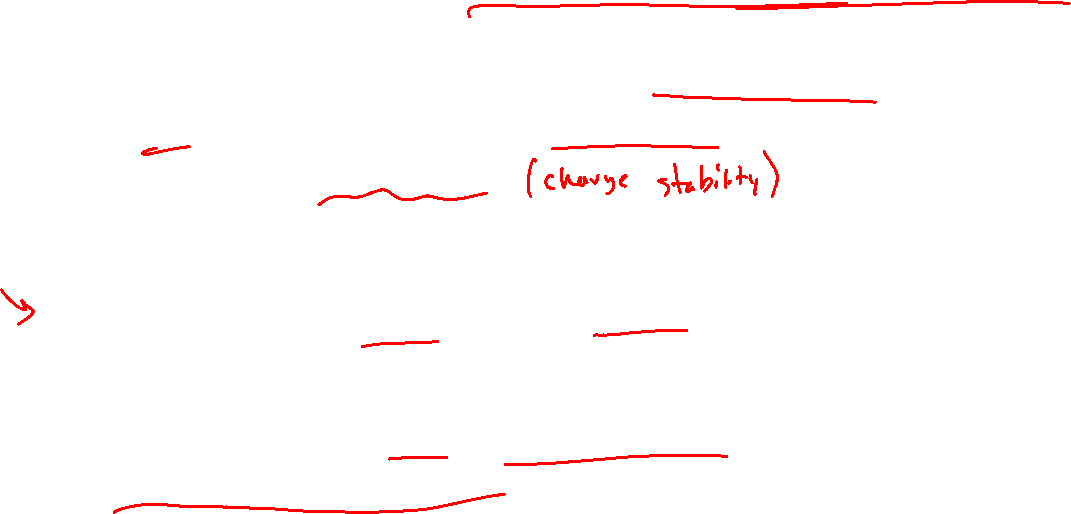 (charge stability)